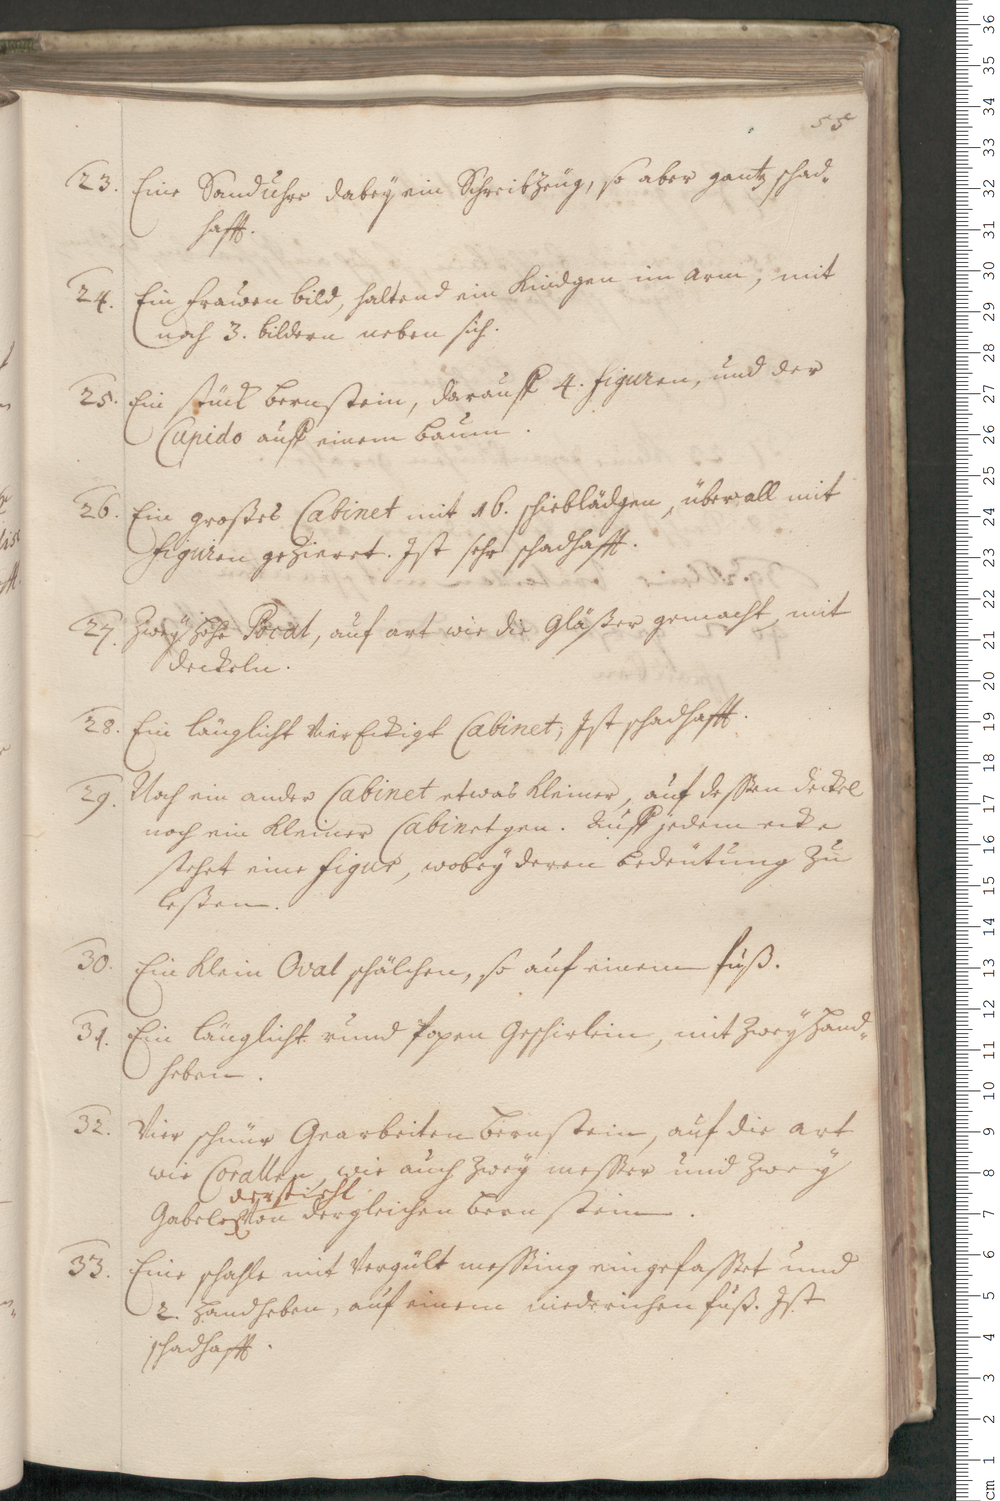 55
23. Eine Sanduhr dabeÿ ein Schreibzeüg, so aber gantz schad-
hafft.
24. Ein frauen bild, haltend ein Kindgen im Arm, mit
noch 3. bildern neben sich.
25. Ein stück bernstein, darauff 4. figuren, und der
Cupido auff einem baum.
26. Ein großes Cabinet mit 16. schieblädgen, überall mit
figuren gezieret. Ist sehr schadhafft.
27. Zweÿ hohe Pocal, auf art wie die Gläßer gemacht, mit
deckeln.
28. Ein länglicht vierEckigt Cabinet, Ist schadhafft.
29. Noch ein ander Cabinet etwas kleiner, auf dessen deckel
noch ein kleiner Cabinetgen. Auff jedem ecke
stehet eine figur, wobeÿ deren bedeütung zu
leßen.
30. Ein klein Oval schälchen, so auf einem fuß.
31. Ein länglicht rund Geschirlein, mit zweÿ Hand-
heben.
32. Vier schnür Gearbeiten bernstein, auf die art
wie Corallen, wie auch zweÿ messer und zweÿ
der stiehl
Gabeln von dergleichen bernstein.
33. Eine schahle mit vergült messing eingefasset und
2. Handheben, auf einem niederichen fuß. Ist
schadhafft.
cm 1 2 3 4 5 6 7 8 9 10 11 12 13 14 15 16 17 18 19 20 21 22 23 24 25 26 27 28 29 30 31 32 33 34 35 36